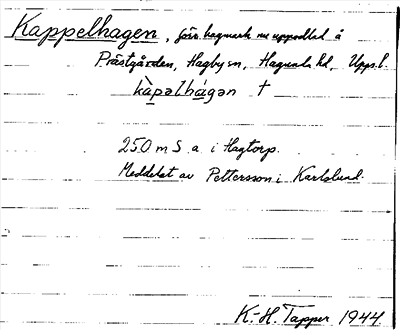 Kappelhagen, förr hagmark nu uppodlad å
Prästgården, Hagby sn, Hagunda hd, Upps. l.
kàpəlhágən †
250 m S. a. i Hagtorp.
Meddelat av Pettersson i Karlslund.
K.-H. Tapper 1944